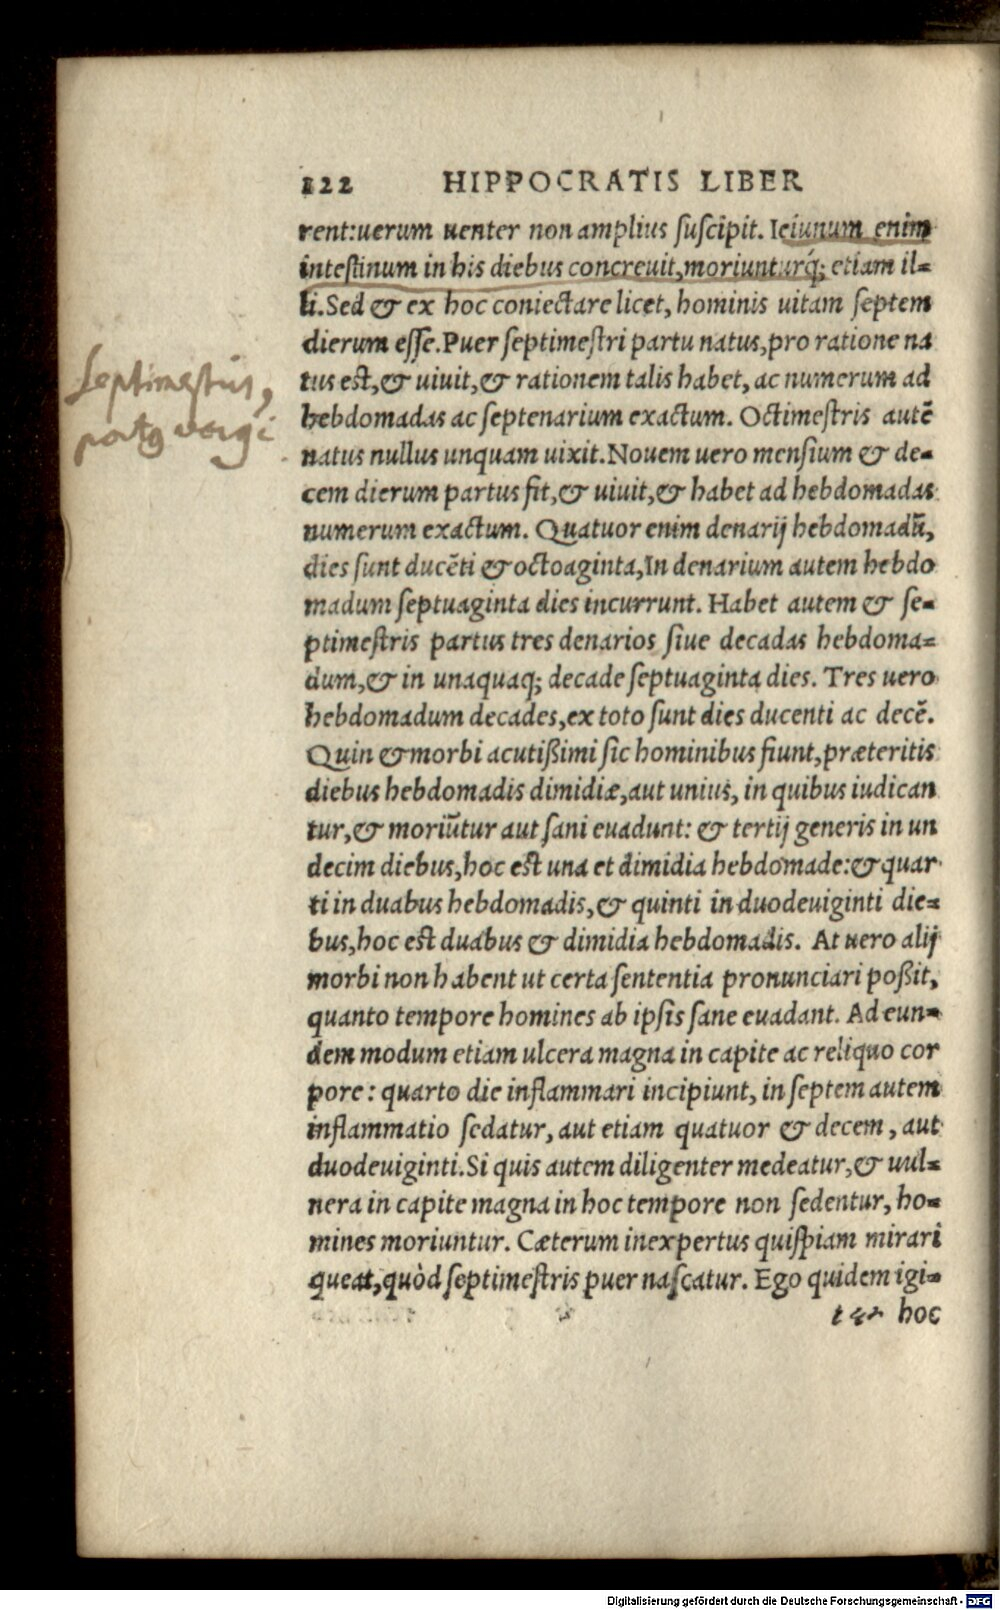 122 HIPPOCRATIS LIBER
rent:uerum uenter non amplius ſuſcipit. Ieiunum enim
inteſtinum in his diebus concreuit,moriunturq́; etiam il=
li.Sed & ex hoc coniectare licet, hominis uitam ſeptem
dierum eſſe.Puer ſeptimeſtri partu natus,pro ratione na
tus eſt,& uiuit,& rationem talis habet, ac numerum ad
Septimestris,
hebdomadas ac ſeptenarium exactum. Octimeſtris autē
natus nullus unquam uixit.Nouem uero menſium & de=
cem dierum partus fit,& uiuit,& habet ad hebdomadas
numerum exactum. Quatuor enim denarij hebdomadū,
dies ſunt ducēti & octoaginta,In denarium autem hebdo
madum ſeptuaginta dies incurrunt. Habet autem & ſe=
ptimeſtris partus tres denarios ſiue decadas hebdoma=
dum,& in unaquaq; decade ſeptuaginta dies. Tres uero
hebdomadum decades,ex toto ſunt dies ducenti ac decē.
Quin & morbi acutißimi ſic hominibus fiunt,præteritis
diebus hebdomadis dimidiæ,aut unius, in quibus iudican
tur,& moriūtur aut ſani euadunt: & tertij generis in un
decim diebus,hoc eſt una et dimidia hebdomade:& quar
ti in duabus hebdomadis,& quinti in duodeuiginti die=
bus,hoc eſt duabus & dimidia hebdomadis. At uero alij
morbi non habent ut certa ſententia pronunciari poßit,
quanto tempore homines ab ipſis ſane euadant. Ad eun=
dem modum etiam ulcera magna in capite ac reliquo cor
pore: quarto die inflammari incipiunt, in ſeptem autem
inflammatio ſedatur, aut etiam quatuor & decem, aut
duodeuiginti.Si quis autem diligenter medeatur,& uul=
nera in capite magna in hoc tempore non ſedentur, ho=
mines moriuntur. Cæterum inexpertus quiſpiam mirari
queat,quòd ſeptimeſtris puer naſcatur. Ego quidem igi=
hoc
Digitalisierung gefördert durch die Deutsche Forschungsgemeinschaft - DFG